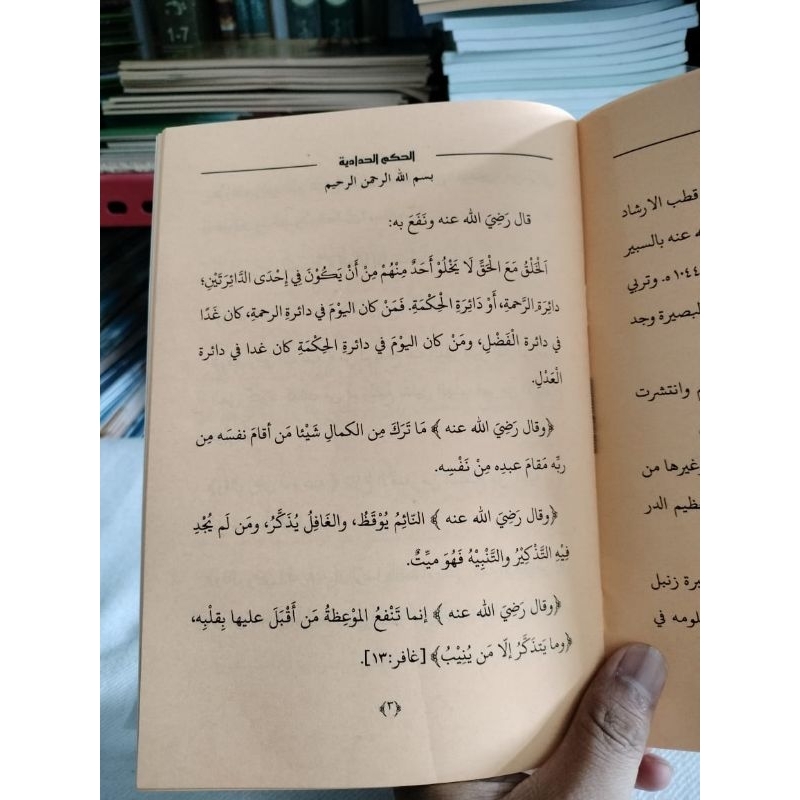 1-7
الحكم الحدادية
بسم الله الرحمن الرحيم
قال رَضِيَ الله عنه ونَفَعَ به:
اَلْخَلْقُ مَعَ الْحَقِّ لَا يَخْلُوْ أَحَدٌ مِنْهُمْ مِنْ أَنْ يَكُوْنَ فِي إِحْدَى الدَّائِرَتَيْنِ؛
دائِرَةِ الرَّحمةِ، أَوْ دَائِرَةِ الْحِكْمَةِ. فَمَنْ كان اليومَ في دائرةِ الرحمةِ، كان غَدًا
في دائرة الْفَضْلِ، ومَنْ كان اليومَ في دائرةِ الحِكْمَةِ كان غدا في دائرة
الْعَدْلِ.
﴿وقال رَضِيَ الله عنه ﴾ مَا تَرَكَ مِن الكمالِ شَيْئا مَن أقامَ نفسَه مِن
ربِّه مَقامَ عبدِه مِنْ نَفْسِه.
﴿وقال رَضِيَ الله عنه ﴾ النّائِمُ يُوْقَظُ، والغَافِلُ يُذَكَّرُ، ومَن لَم يُجْدِ
فِيْهِ التَّذْكِيْرُ والتَّنْبِيْهُ فَهُوَ ميِّتٌ.
﴿وقال رَضِيَ الله عنه ﴾ إنما تَنْفعُ الموْعِظةُ مَن أَقْبَلَ عليها بِقلْبِه،
﴿وما يَتذَكَّرُ إلّا مَن يُنِيْبُ﴾ [غافر:١٣].
﴿٣﴾
قطب الارشاد
عنه بالسبير
١٠٤٤ه. وتربي
لبصيرة وجد
وانتشرت
وغيرها من
الدر
زنبل
في